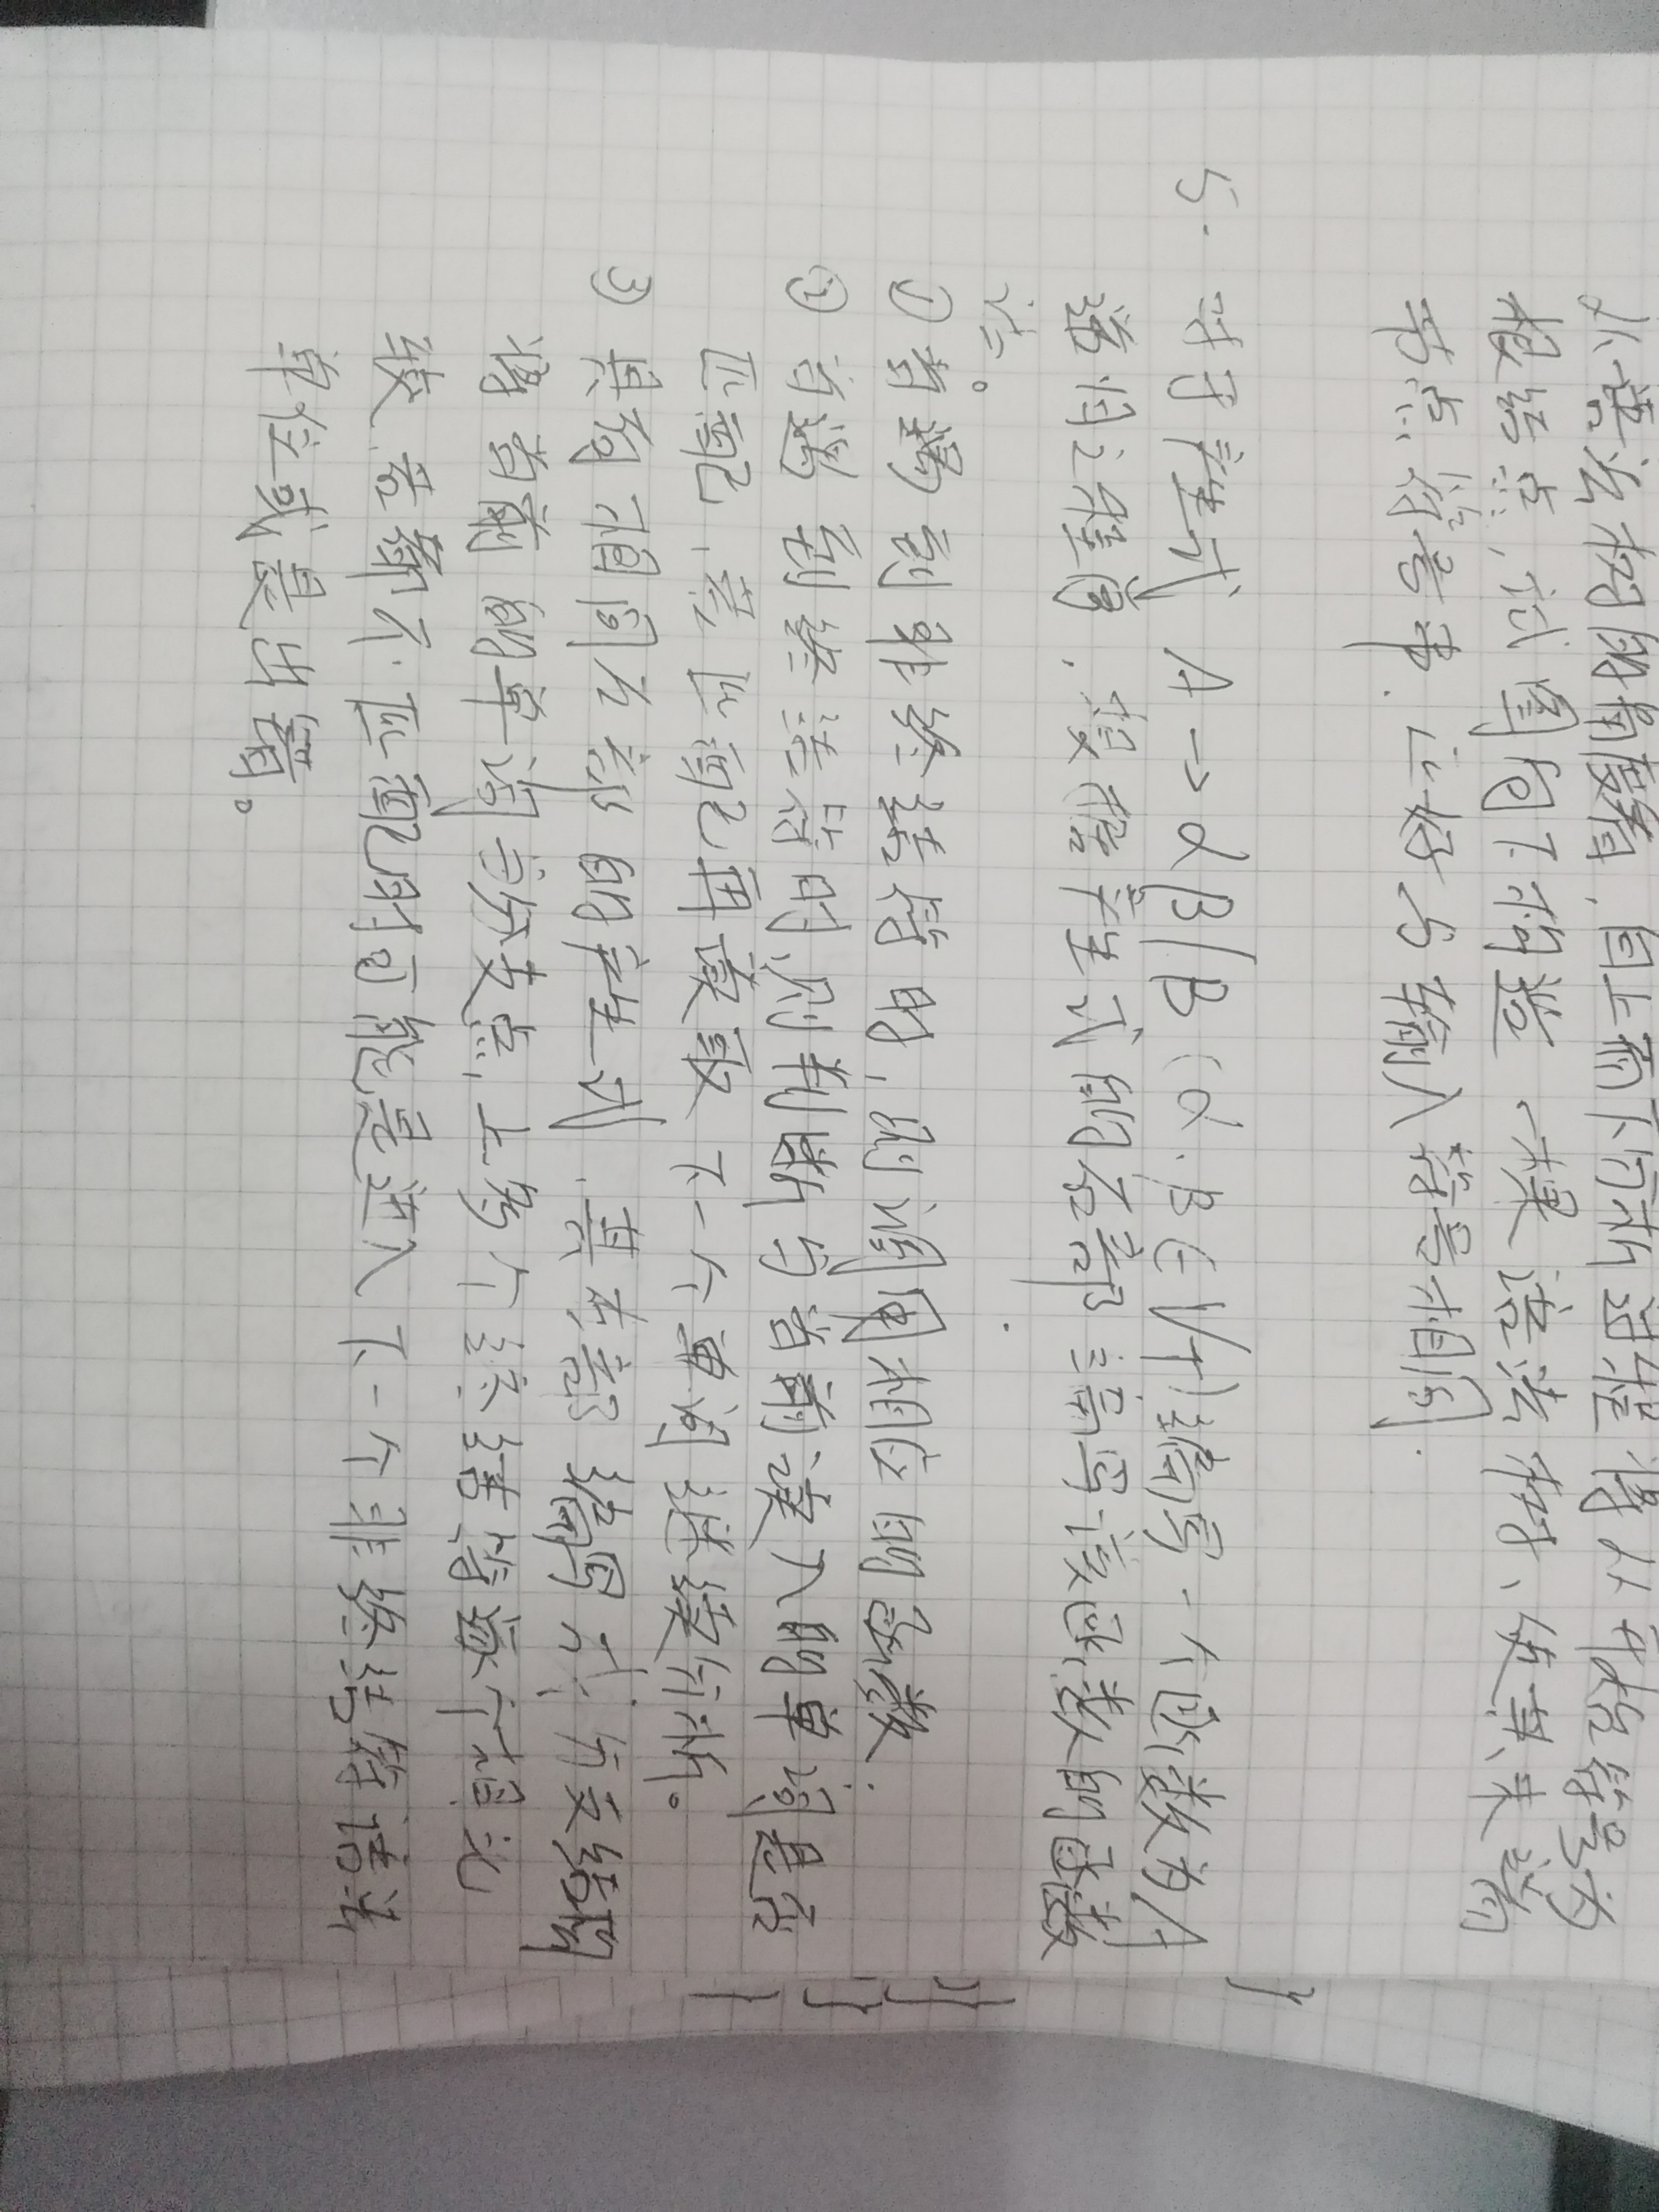 从语法树的角度看，自上而下分析过程是从开始符号为
根结点，试图向下构造一棵语法树，使其末端
节点符号串，正好与输入符号相同．
5. 对于产生式 A→α|β(α.β∈V*)编写一个函数为A
递归过程函，根据产生式的右部编写该函数的函数
体。
① 当遇到非终结符时，则调用相应的函数．
② 当遇到终结符时，则判断与当前读入的单词是否
匹配，若匹配再读取下一个单词继续分析。
③ 具有相同左部的产生式，其右部编写为分支结构
当前的单词与分支点上多个终结符逐个相比
较，若都不匹配时可能是进入下一个非终结符语法
单位或是出错。